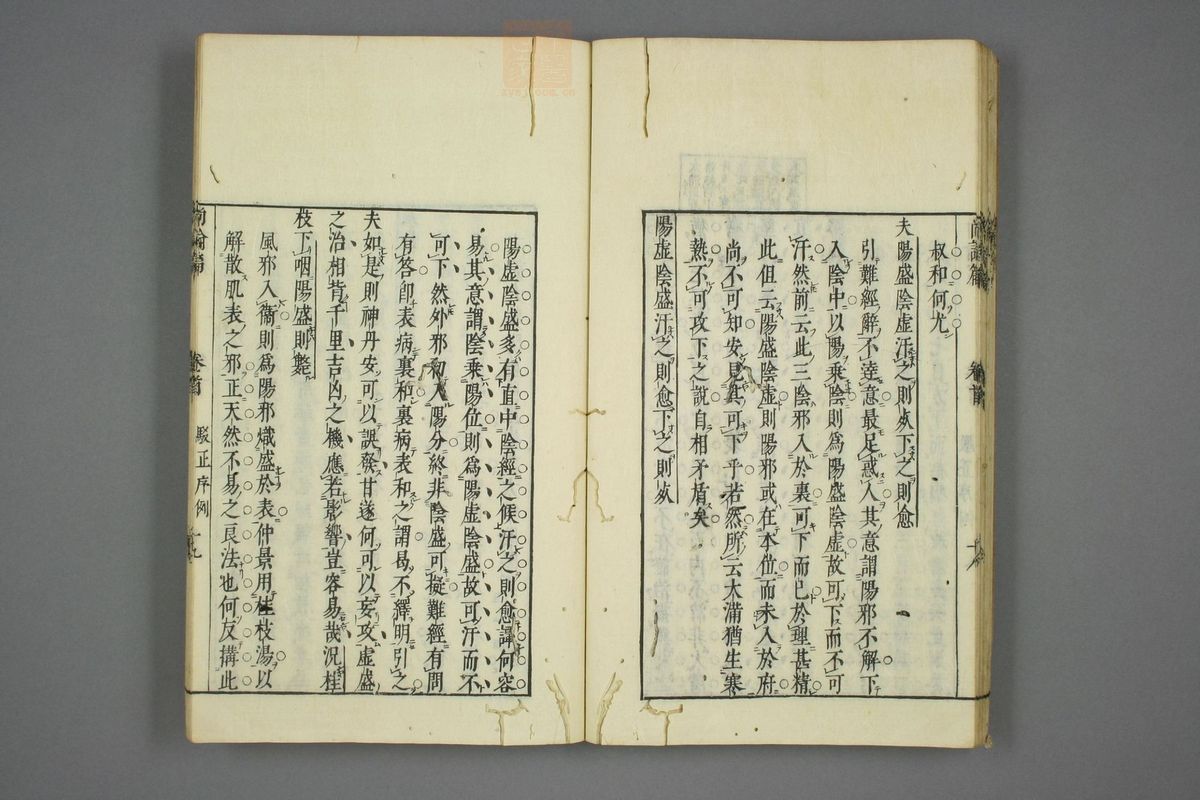 叔和何尤
夫陽盛陰虛汗之則死下之則愈
引難經辭不達意最足惑人其意謂陽邪不解下
入陰中以陽乘陰則爲陽盛陰虛故可下而不可
汗然前云此三陰邪入於裏可下而已於理甚精
此但云陽盛陰虛則陽邪或在本位而未入於府
尚不可知安見其可下乎若然所云大滿猶生寒
熱不可攻下之說自相矛盾矣
陽虛陰盛汗之則愈下之則死
陽虛陰盛多有直中陰經之候汗之則愈談何容
易其意謂陰乘陽位則爲陽虛陰盛故可汗而不
可下然外邪初入陽分終非陰盛可擬難經有問
有答卽表病裏和裏病表和之謂曷不繹明引之
夫如是則神丹安可以誤發甘遂何可以妄攻虛盛
之治相背千里吉凶之機應若影響豈容易哉況桂
枝下咽陽盛則斃
風邪入衞則爲陽邪熾盛於表仲景用桂枝湯以
解散肌表之邪正天然不易之良法也何反搆此
尚論篇
卷首
駁正序例
十九